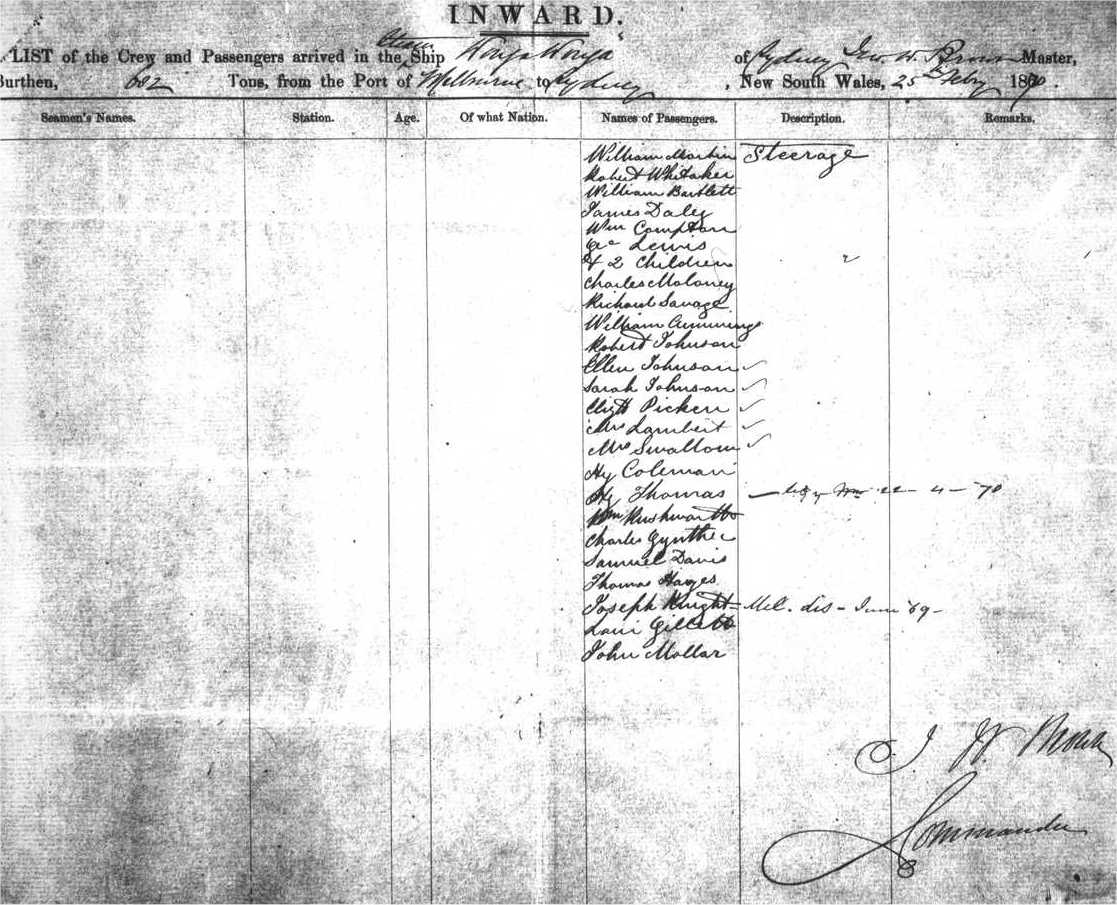 INWARD.
LIST of the Crew and Passengers arrived in the Steam Ship "Wonga Wonga" of Sydney W. Brown Master,
Burthen, 682 Tons, from the Port of Melbourne to Sydney, New South Wales, 25th Feby 1870.
Seamen's Names. Station. Age. Of what Nation. Names of Passengers. Description. Remarks.
William Martin Steerage
Robert Whitaker
William Bartlett
James Daley
Wm Compton
Lewis
& 2 Children
Charles Maloney
Richard Savage
William Cummings
Robert Johnson
Ellen Johnson
Sarah Johnson
Elizth Picken
Mrs Lambert
Mrs Swallow
Hy Coleman
Hy Thomas 22-4-70
Wm Rushworth
Charles Gynther
Samuel Davis
Thomas Hayes
Joseph Knight - Mil. dis - June 69 -
Gillett
John Mollar
J W. Brown
Commander